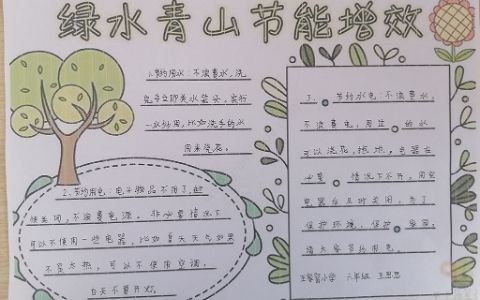 绿水青山节能增效
1.节约用水：不浪费水，洗
完手立即关水龙头，实行
一水多用，比如洗手的水
用来浇花。
2、节约用电：电子物品不用了就
便关闭，不浪费电源，非必要情况下
可以不使用一些电器，比如夏天天气如果
不是太热，可以不使用空调，
白天不要开灯。
3、节约水电：不浪费水，
不浪费电，用的水
可以浇花，拖地，电器在
必要情况下不开，用完
电器后及时关闭，为了
保护环境，保护家，
请大家节约用电。
小学 六年级 王思思